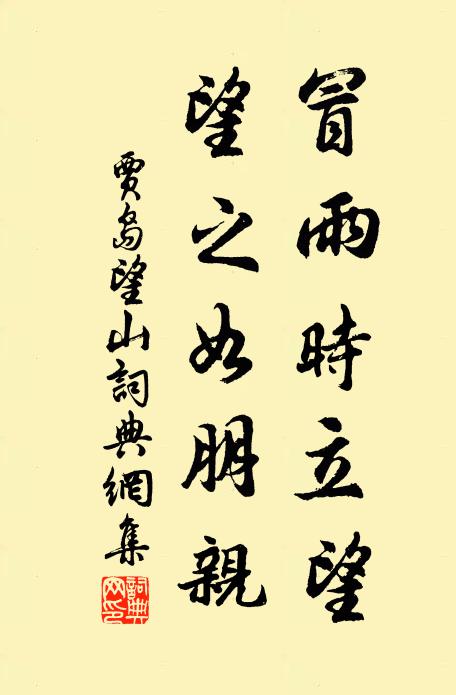 冒雨時立望
望之如朋親
賈島望山詞典網集
詞典網印